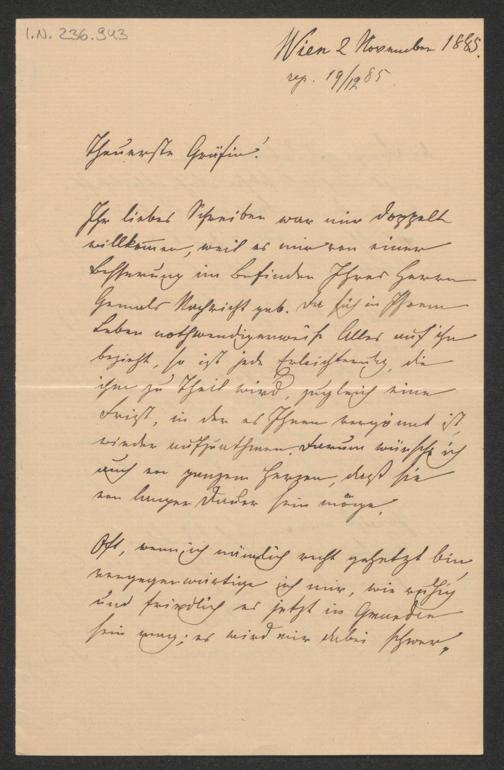 I.N. 236.943
Wien 2 November 1885.
rep. 19/12 85
Theuerste Gräfin!
Ihr liebes Schreiben war mir doppelt
willkommen, weil es mir von einer
Besserung im Befinden Ihres Herrn
Gemals Nachricht gab. Da sich in Ihrem
Leben nothwendigerweise Alles auf ihn
bezieht, so ist jede Erleichterung, die
ihm zu Theil wird, zugleich eine
Frist, in der es Ihnen vergönnt ist,
wieder aufzuathmen. Darum wünsche ich
auch von ganzem Herzen, daß sie
von langer Dauer sein möge.
Oft, wenn ich nämlich recht gehetzt bin,
vergegenwärtige ich mir, wie ruhig
und friedlich es jetzt in Gmunden
sein mag; es wird mir dabei schwer,